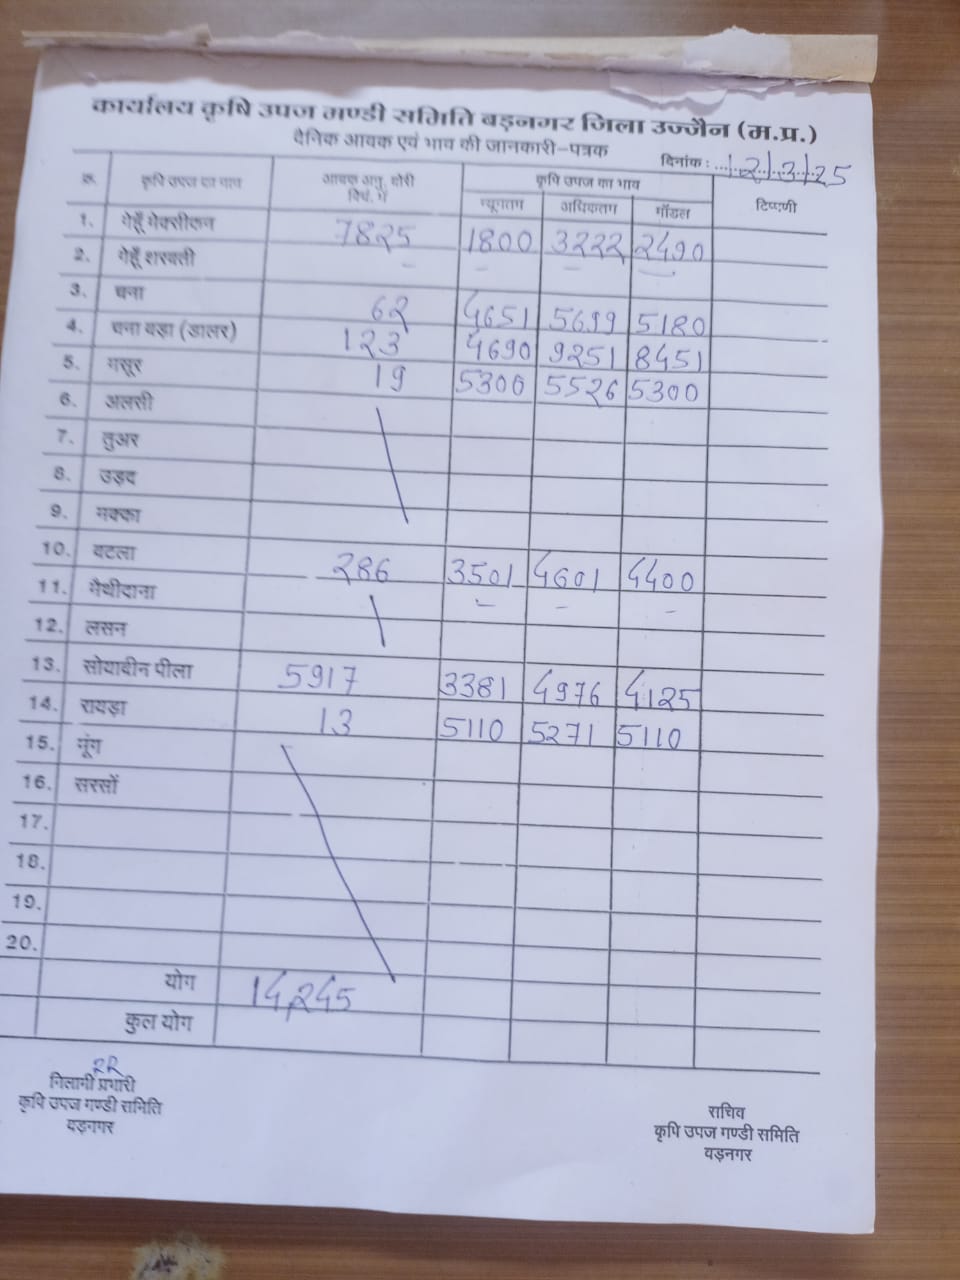 कार्यालय कृषि उपज मण्डी समिति बड़नगर जिला उज्जैन (म.प्र.)
दैनिक आवक एवं भाव की जानकारी-पत्रक
दिनांक : 12/3/25
क्र. कृषि उपज का नाम आवक अनु. बोरी क्विं. में कृषि उपज का भाव टिप्पणी
न्यूनतम अधिकतम मॉडल
1. गेहूँ मेक्सीकन 7825 1800 3222 2490
2. गेहूँ शरबती - - - -
3. चना 62 4651 5699 5180
4. चना बड़ा (डालर) 123 4690 9251 8451
5. मसूर 19 5300 5526 5300
6. अलसी
7. तुअर
8. उड़द
9. मक्का
10. बटला 286 3501 4601 4400
11. मैथीदाना - - -
12. लसन
13. सोयाबीन पीला 5917 3381 4976 4125
14. रायड़ा 13 5110 5271 5110
15. मूंग
16. सरसों
17.
18.
19.
20.
योग 14,245
कुल योग
निलामी प्रभारी
कृषि उपज मण्डी समिति
बड़नगर
सचिव
कृषि उपज मण्डी समिति
बड़नगर